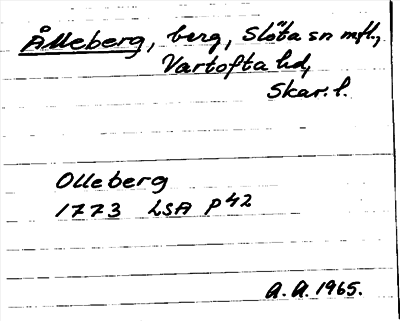 Ålleberg, berg, Slöta sn mfl.,
Vartofta hd,
Skar. l.
Olleberg
1773 LSA P42
A. A. 1965.